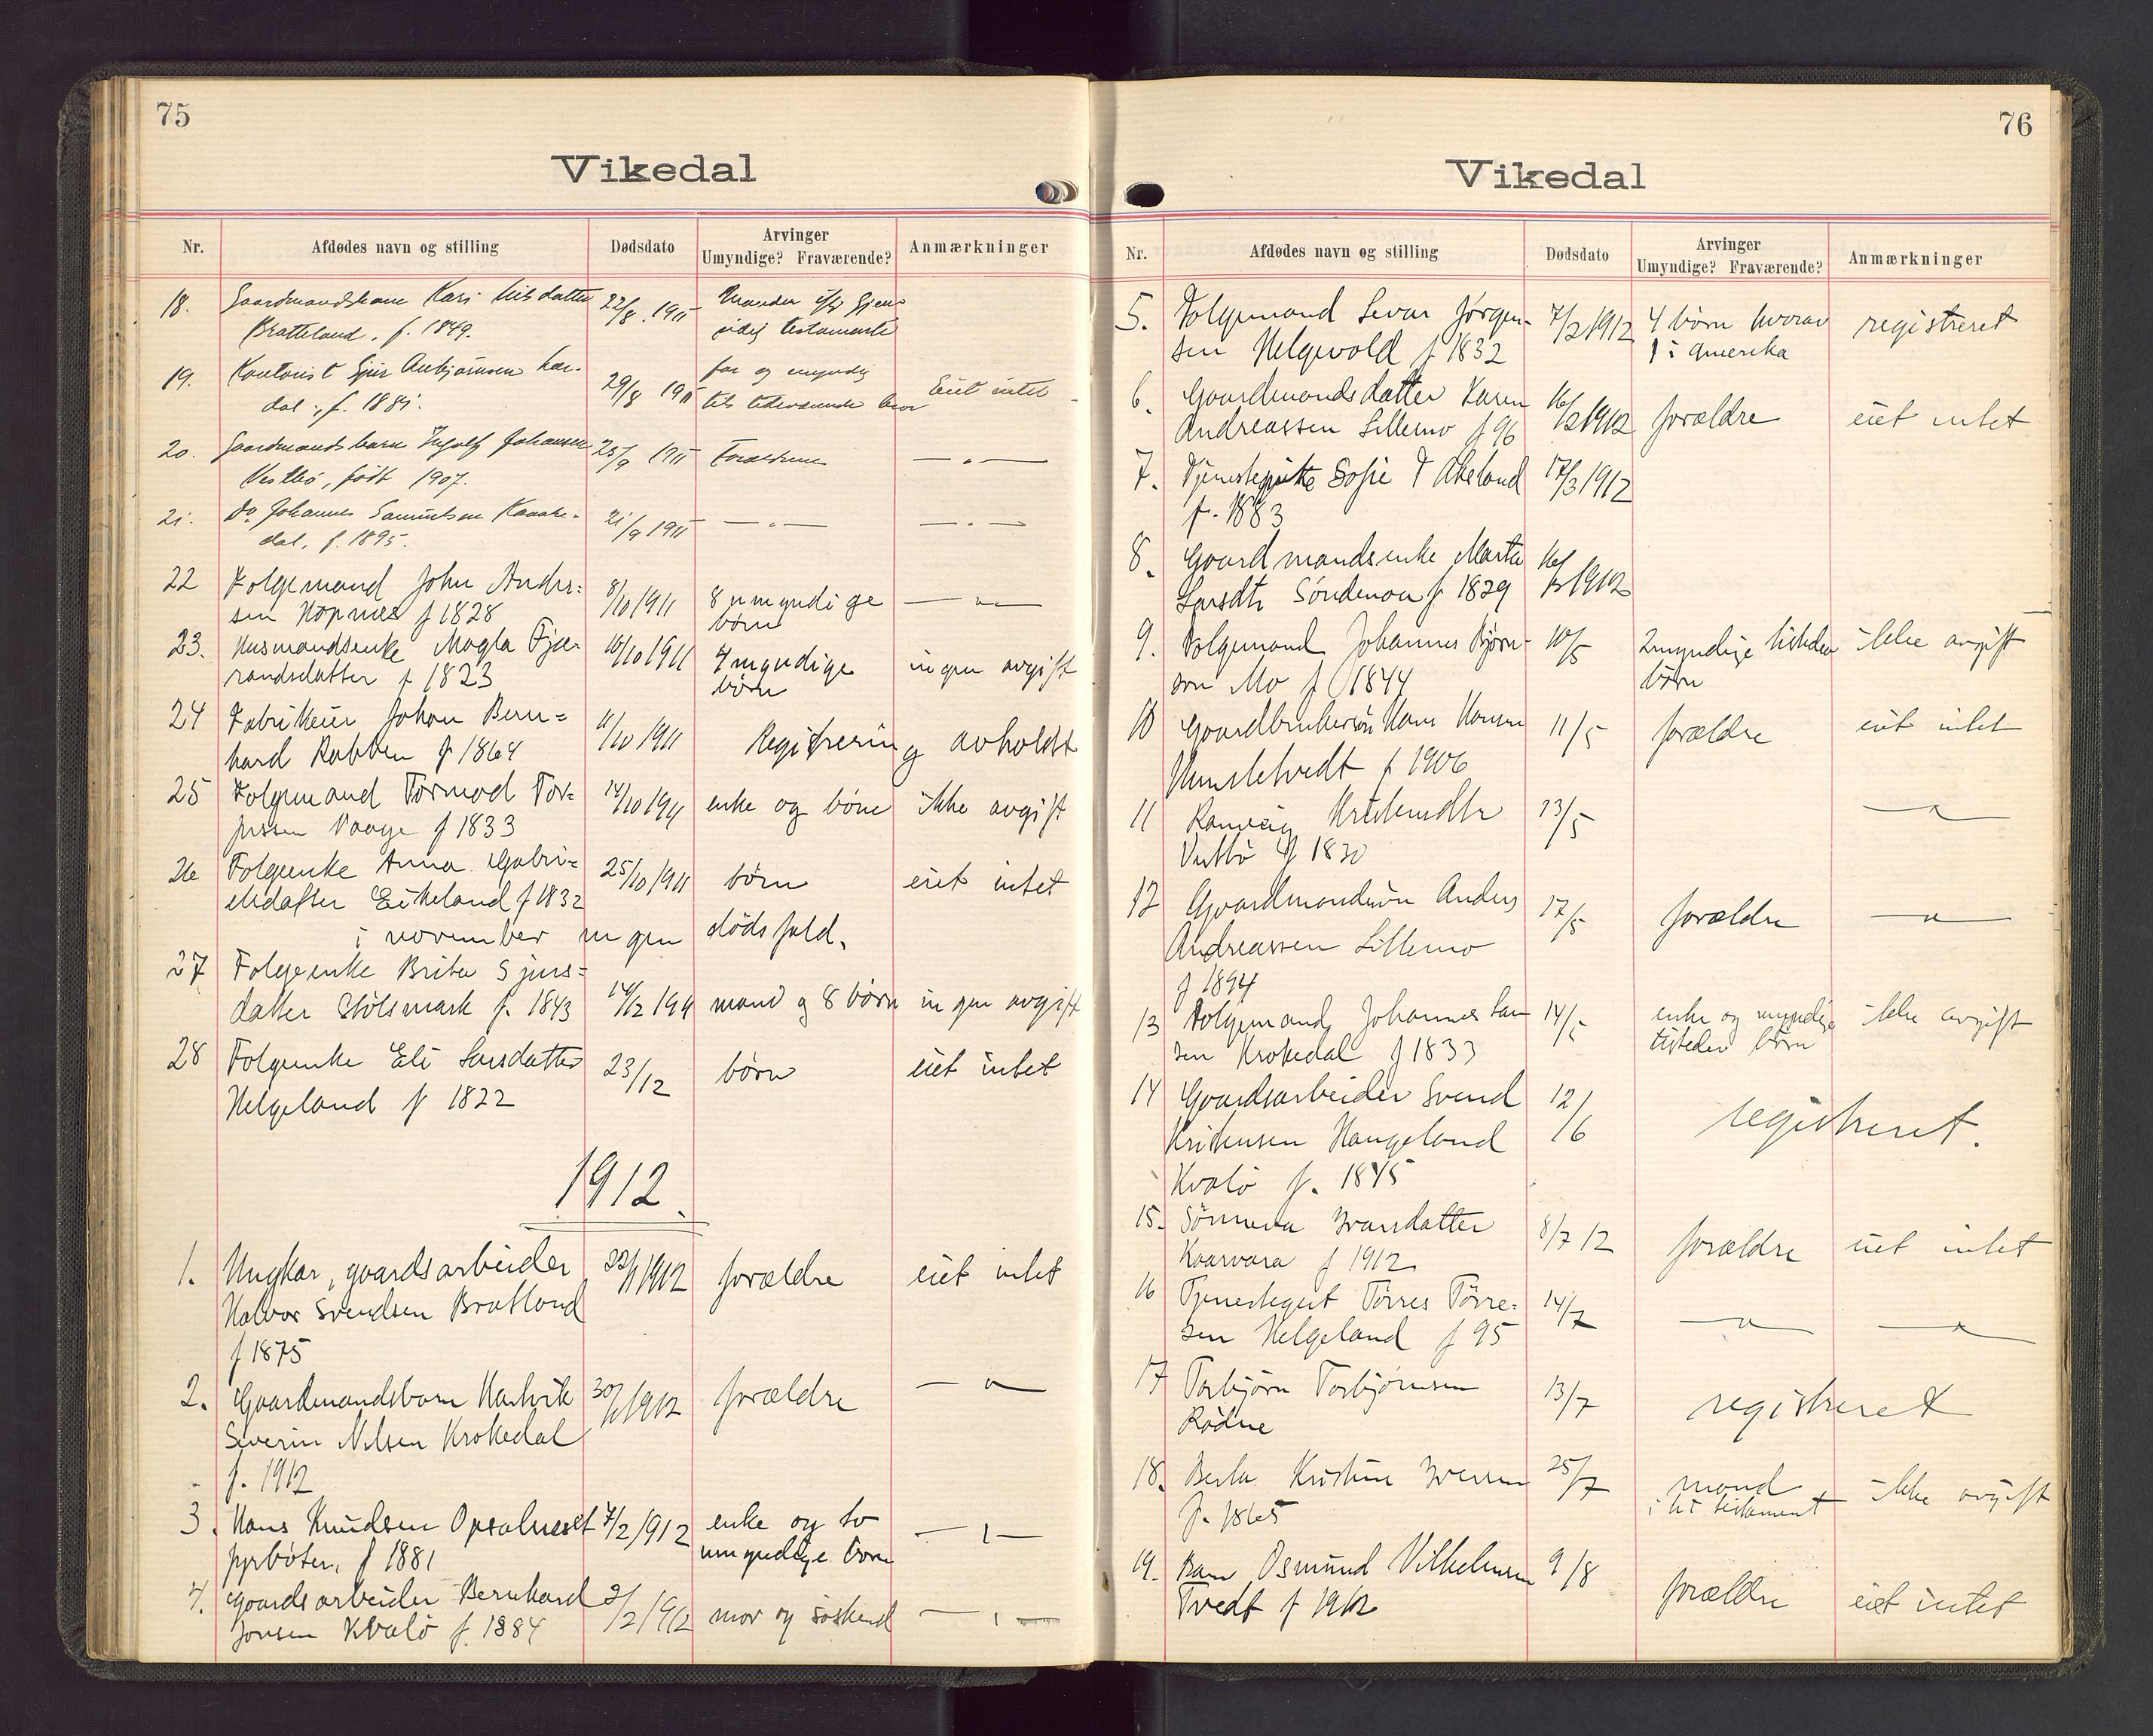 75
Vikedal
Nr. Afdødes navn og stilling Dødsdato Arvinger Umyndige? Fraværende? Anmærkninger
18. Gaardmandskone Kari Nilsdatter 22/8 1911 Manden gjen-
Bratteland, f. 1849. sidig testamente
19. Kontorist Sjur Anbjørnsen Lar- 29/8 1911 far og myndig Eiet intet
dal, f. 1881. bror
20. Gaardmandsbarn Ingolf Johansen 25/9 1911 Forældrene — " —
Vestbø, født 1907.
21. Do. Johannes Samuelsen 21/9 1911 — " — — " —
dal, f. 1895.
22 Folgemand John Anders- 8/10 1911 8 umyndige — " —
sen Hopnes f 1828 børn
23. Husmandsenke Magla Fjæ- 10/10 1911 4 myndige ingen avgift
randsdatter f 1823 børn
24 Fabrikeier Johan Bern- 11/10 1911 Registrering avholdt
hard Rabben f 1864
25 Folgemand Tormod Tor- 14/10 1911 enke og børn ikke avgift
jussen Vaage f 1833
26 Folgeenke Anna Gabri- 25/10 1911 børn eiet intet
elsdatter Eikeland f 1832
i november ingen dødsfald.
27 Folgeenke Brita Sjurs- 14/12 1911 mand og 8 børn ingen avgift
datter Stølsmark f. 1843
28 Folgeenke Eli Larsdatter 23/12 børn eiet intet
Helgeland f 1822
1912.
1. Ungkar, gaardsarbeider 22/1 1912 forældre eiet intet
Halvor Svendsen Bratland
f 1875
2. Gaardmandsbarn Hartvik 30/1 1912 forældre — " —
Severin Nilsen Krokedal
f. 1912
3. Hans Knudsen Opsalneset 7/2 1912 enke og to — " —
fyrbøter, f 1881 umyndige børn
4. Gaardsarbeider Bernhard 9/2 1912 mor og søskend — " —
Jonsen Kvalø f. 1884
76
Vikedal
Nr. Afdødes navn og stilling Dødsdato Arvinger Umyndige? Fraværende? Anmærkninger
5. Folgemand Sevar Jørgen- 7/2 1912 4 børn hvorav registreret
sen Helgevold f 1832 1 i Amerika
6. Gaardmandsdatter Karen 16/2 1912 forældre eiet intet
Andreassen Lillemo f 96
7. Tjenestepike Sofie T Akeland 17/3 1912
f. 1883
8. Gaardmandsenke Marta 16/ 1912
Larsdtr Søndenaa f 1829
9. Folgemand Johannes Bjørn- 10/5 2 myndige tilstedev ikke avgift
son Mo f 1844 børn
10 Gaardbrukersøn Hans Hansen 11/5 forældre eiet intet
f 1906
11 Ranveig Kristensdtr 13/5 — " —
Vestbø f 1830
12 Gaardmandssøn Anders 17/5 forældre — " —
Andreassen Lillemo
f 1894
13 Folgemand Johannes Lar- 14/5 enke og myndige ikke avgift
sen Krokedal f 1833 tilstedev børn
14 Gaardsarbeider Svend 12/6 registreret.
Kristensen Haugeland
Kvalø f. 1845
15. Sønneva Ivarsdatter 8/7 12 forældre eiet intet
Kvarvara f 1912
16 Tjenestegut Tørres Tørre- 14/7 — " — — " —
sen Helgeland f 95
17 Torbjørn Torbjørnsen 13/7 registreret
Rødne
18. Berta Kristine Iversen 25/7 mand ikke avgift
f. 1865 i flg testament
19. Barn Osmund Vilhelmsen 9/8 forældre eiet intet
Tvedt f 1912